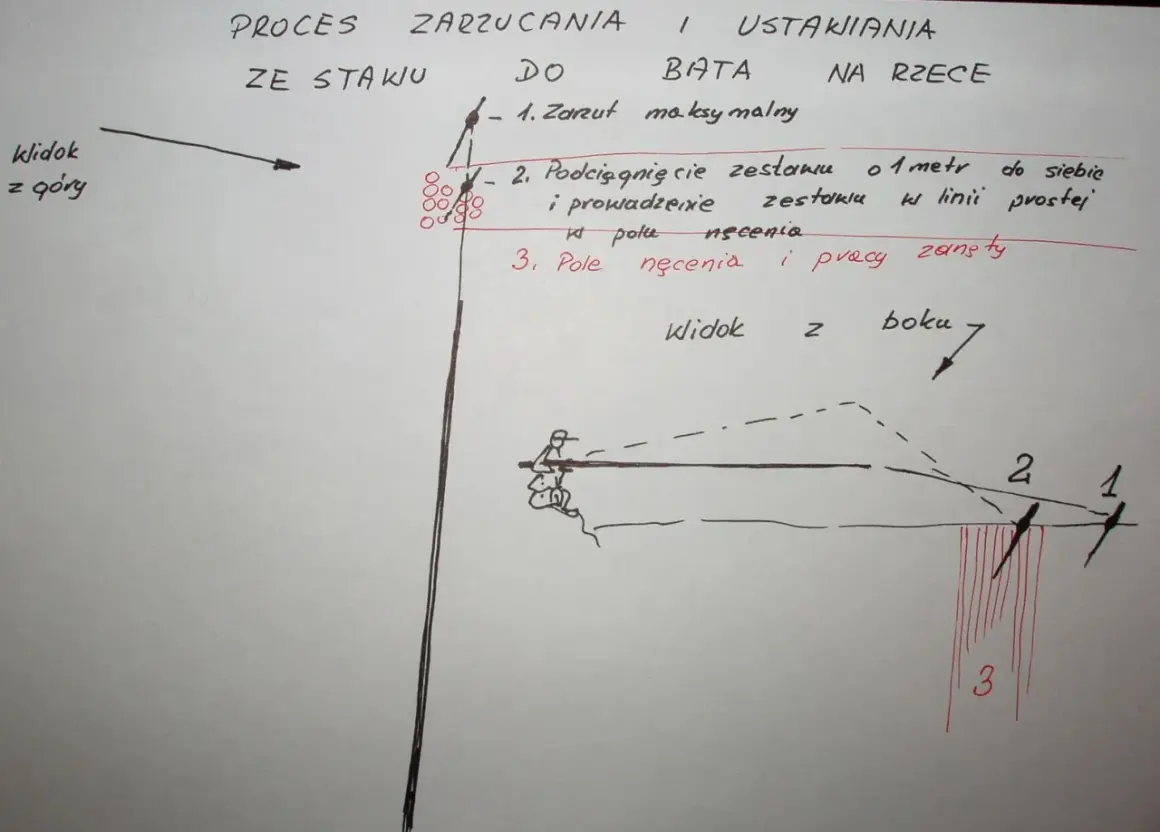 PROCES ZARZUCANIA I USTAWIANIA
ZESTAWU DO BATA NA RZECE
1. Zarzut maksymalny
Widok
z góry
2. Podciągnięcie zestawu o 1 metr do siebie
i prowadzenie zestawu w linii prostej
w polu nęcenia
3. Pole nęcenia i pracy zanęty
Widok z boku
2
1
3